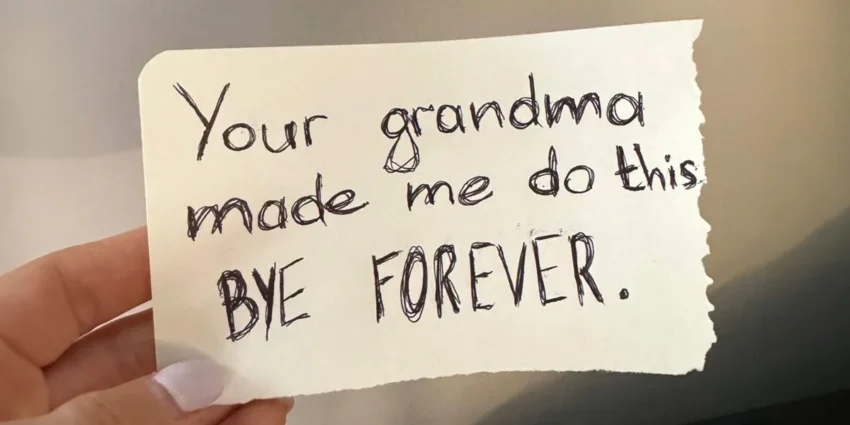 Your grandma
made me do this
BYE FOREVER.